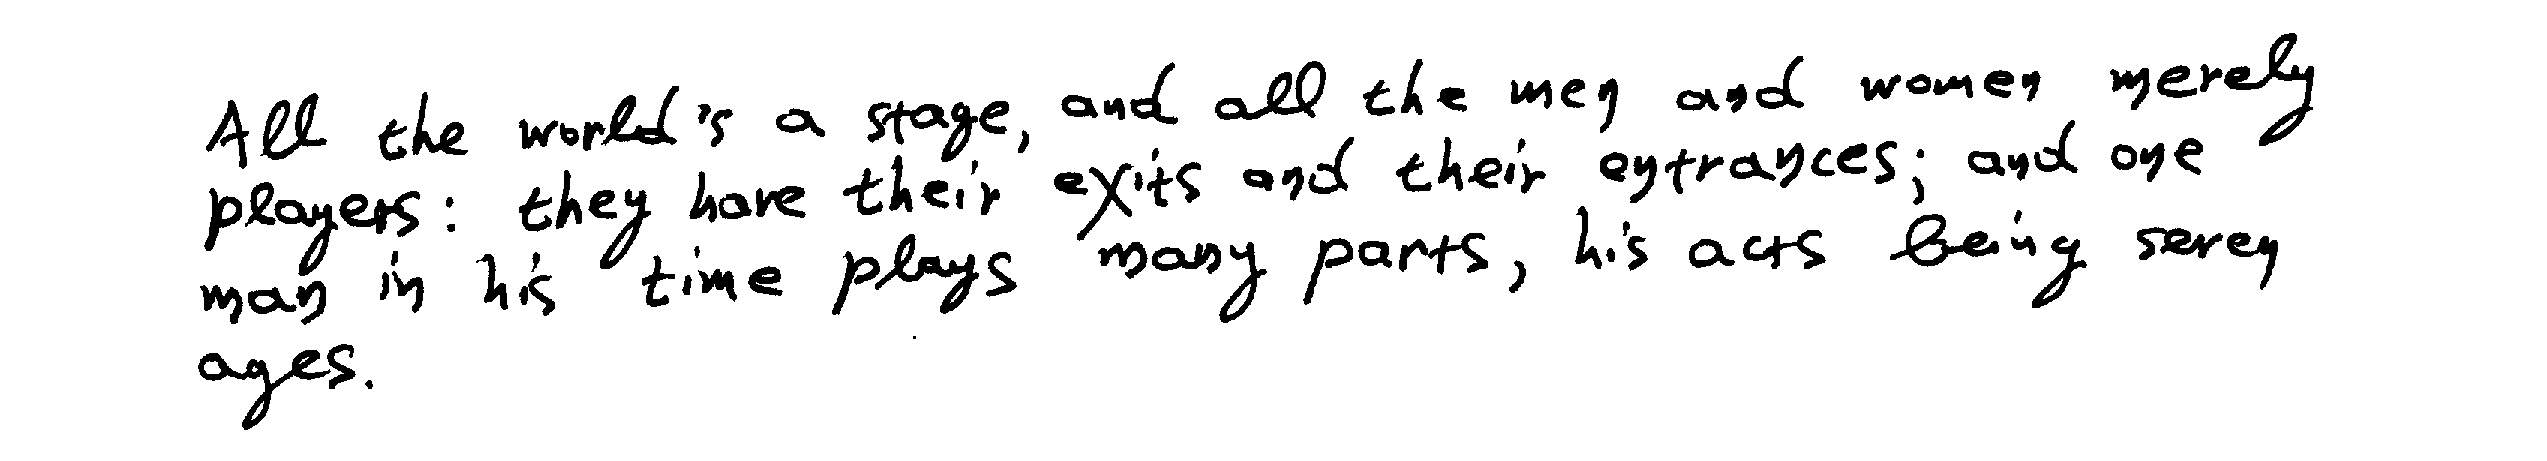 All the world's a stage, and all the men and women merely
players: they have their exits and their entrances; and one
man in his time plays many parts, his acts being seven
ages.